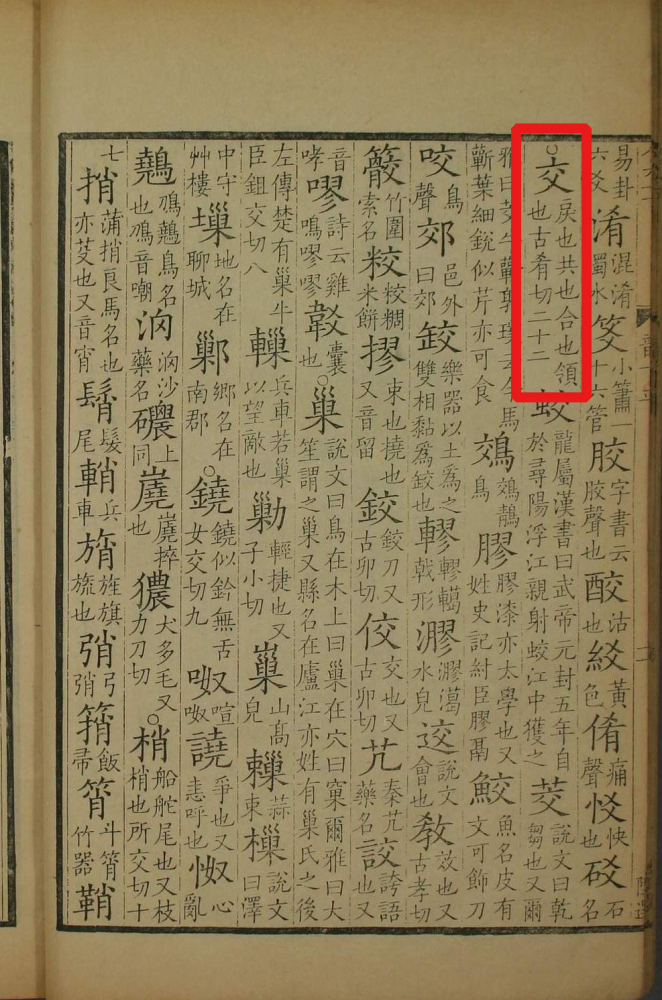 易卦六爻淆混淆濁水筊小簫一十六管字書云聲也沽也絞黃色倄痛聲恔快也石名
交戾也共也合也領也古肴切二十二蛟龍屬漢書曰武帝元封五年自於尋陽浮江親射蛟江中獲之茭說文曰乾芻也又爾
雅曰茭牛蘄郭璞云今馬蘄葉細銳似芹亦可食鵁鵁鶄鳥膠膠漆亦太學也又姓史記紂臣膠鬲鮫魚名皮有文可飾刀
咬鳥聲郊邑外曰郊樂器以土爲之雙相黏爲也轇轇轕戟形漻水皃說文會也教效也又古孝切
竹圍索名米餅摎束也撓也又音留鉸鉸刀又古卯切佼交也又古卯切艽秦艽藥名詨誇語也又
音哮嘐詩云雞鳴嘐嘐囊也○巢說文曰鳥在木上曰巢在穴曰窠爾雅曰大笙謂之巢又縣名在廬江亦姓有巢氏之後
左傳楚有巢牛臣鉏交切八轈兵車若巢以望敵也勦輕捷也又子小切山高皃蒜束樔說文曰澤
中守艸樓地名在聊城鄛鄉名在南郡○鐃鐃似鈴無舌女交切九呶喧呶譊爭也又恚呼也怓心亂
鳥名也音嘲泑泑沙藥名上同也犬多毛又力刀切○梢船舵尾也又枝梢也所交切十
七捎蒲捎良馬名也亦芟也又音宵髾髮尾兵車旓旌旗旒也弰弓弰飯帚筲斗筲竹器鞘